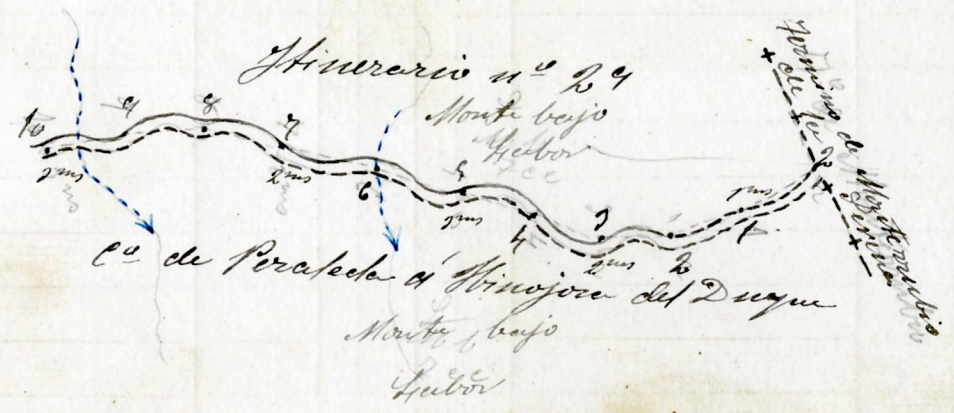 Itinerario nº 29
Monte bajo
Labor
Termino de Monterrubio
de la Serena
10
9
8
7
6
5
4
3
2
1
0
3ms
2ms
3ms
2ms
1ms
Cº de Peraleda á Hinojosa del Duque
Monte bajo
Labor